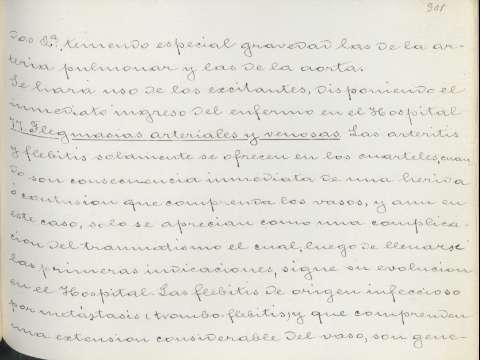 301
dos &ª, teniendo especial gravedad las de la ar-
teria pulmonar y las de la aorta.
Se hará uso de los excitantes, disponiendo el
inmediato ingreso del enfermo en el Hospital
77. Flegmasias arteriales y venosas. Las arteritis
y flebitis solamente se ofrecen en los cuarteles, cuan
do son consecuencia inmediata de una herida
ó contusion que comprenda los vasos, y aun en
este caso, solo se aprecian como una complica-
cion del traumatismo el cual, luego de llenarse
las primeras indicaciones, sigue su evolucion
en el Hospital. Las flebitis de origen infeccioso
por metástasis (trombo-flebitis) y que comprenden
una extension considerable del vaso, son gene-